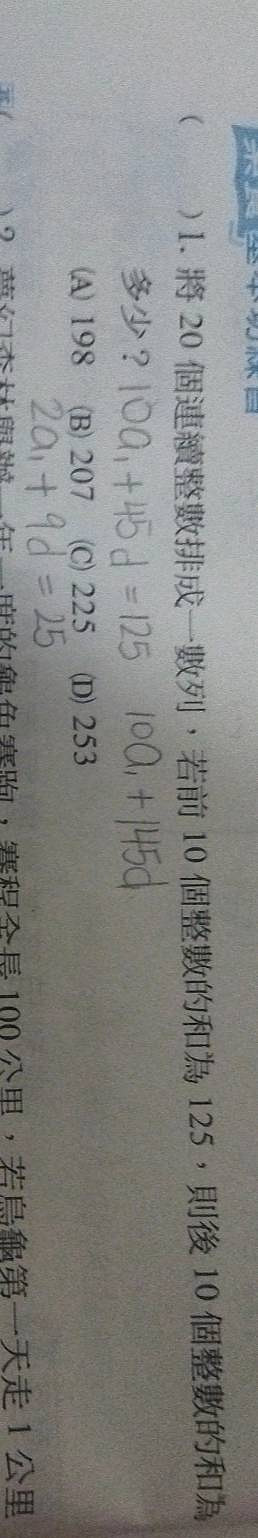 ( )1. 將 20 個連續整數排成一數列，若前 10 個整數的和為 125，則後 10 個整數的和為
多少？10a₁+45d=125 10a₁+145d
(A) 198 (B) 207 (C) 225 (D) 253
2a₁+9d=25
)2. 年一度的龜兔賽跑，賽程全長 100 公里，若烏龜第一天走 1 公里